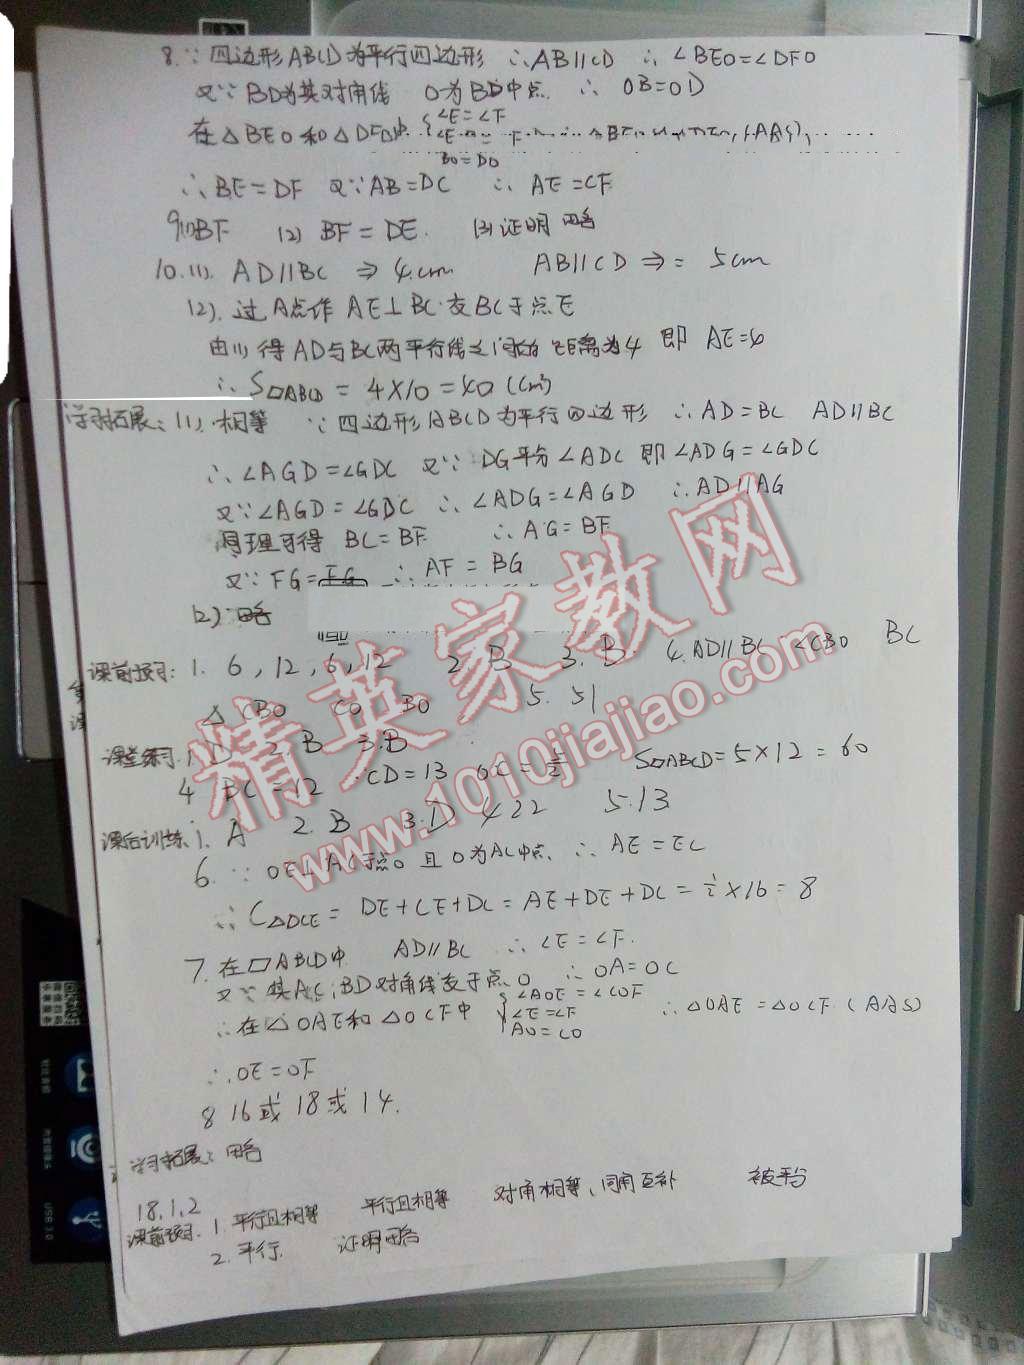 8. ∵ 四边形ABCD为平行四边形 ∴AB∥CD ∴ ∠BEO=∠DFO
又∵ BD为其对角线 O为BD中点 ∴ OB=OD
在△BEO和△DFO中 {∠E=∠F
BO=DO (AAS),
∴BE=DF 又∵AB=DC ∴ AE=CF
9(1)BF (2) BF=DE. (3)证明略
10.(1). AD∥BC ⇒ 4cm AB∥CD ⇒= 5cm
(2). 过A点作 AE⊥BC交BC于点E
由(1)得AD与BC两平行线之间的距离为4 即 AE=4
∴ S▱ABCD = 4×10=40 (cm²)
学习拓展: (1). 相等 ∵ 四边形ABCD为平行四边形 ∴AD=BC AD∥BC
∴∠AGD=∠GDC 又∵ DG平分∠ADC 即∠ADG=∠GDC
又∵∠AGD=∠GDC ∴∠ADG=∠AGD ∴AD∥AG
同理可得 BC=BF ∴AG=BF
又∵ FG=FG ∴ AF=BG
(2) 略
课前预习: 1. 6, 12, 6, 12 2. B 3. B. 4. AD∥BC ∠CBO BC
△CBO CO BO 5. 51
课堂练习. 1. D 2. B 3. B
4 BC=12 CD=13 OC=5/2 S▱ABCD=5×12=60
课后训练 1. A 2. B 3. D 4 22 5. 13
6. ∵ OE⊥AC于点O 且O为AC中点. ∴ AE=EC
∴ C△DCE= DE+CE+DC=AE+DE+DC=½×16=8
7. 在▱ABCD中 AD∥BC ∴∠E=∠F.
又∵ 其AC,BD对角线交于点O ∴OA=OC
∴在△OAE和△OCF中 {∠AOE=∠COF ∠E=∠F AO=CO ∴△OAE=△OCF (AAS)
∴OE=OF
8 16或18或14.
学习拓展: 略
18.1.2
课前预习. 1. 平行且相等 平行且相等 对角相等、同角互补 被平分
2. 平行. 证明略
精英家教网
www.1010jiajiao.com
USB 3.0